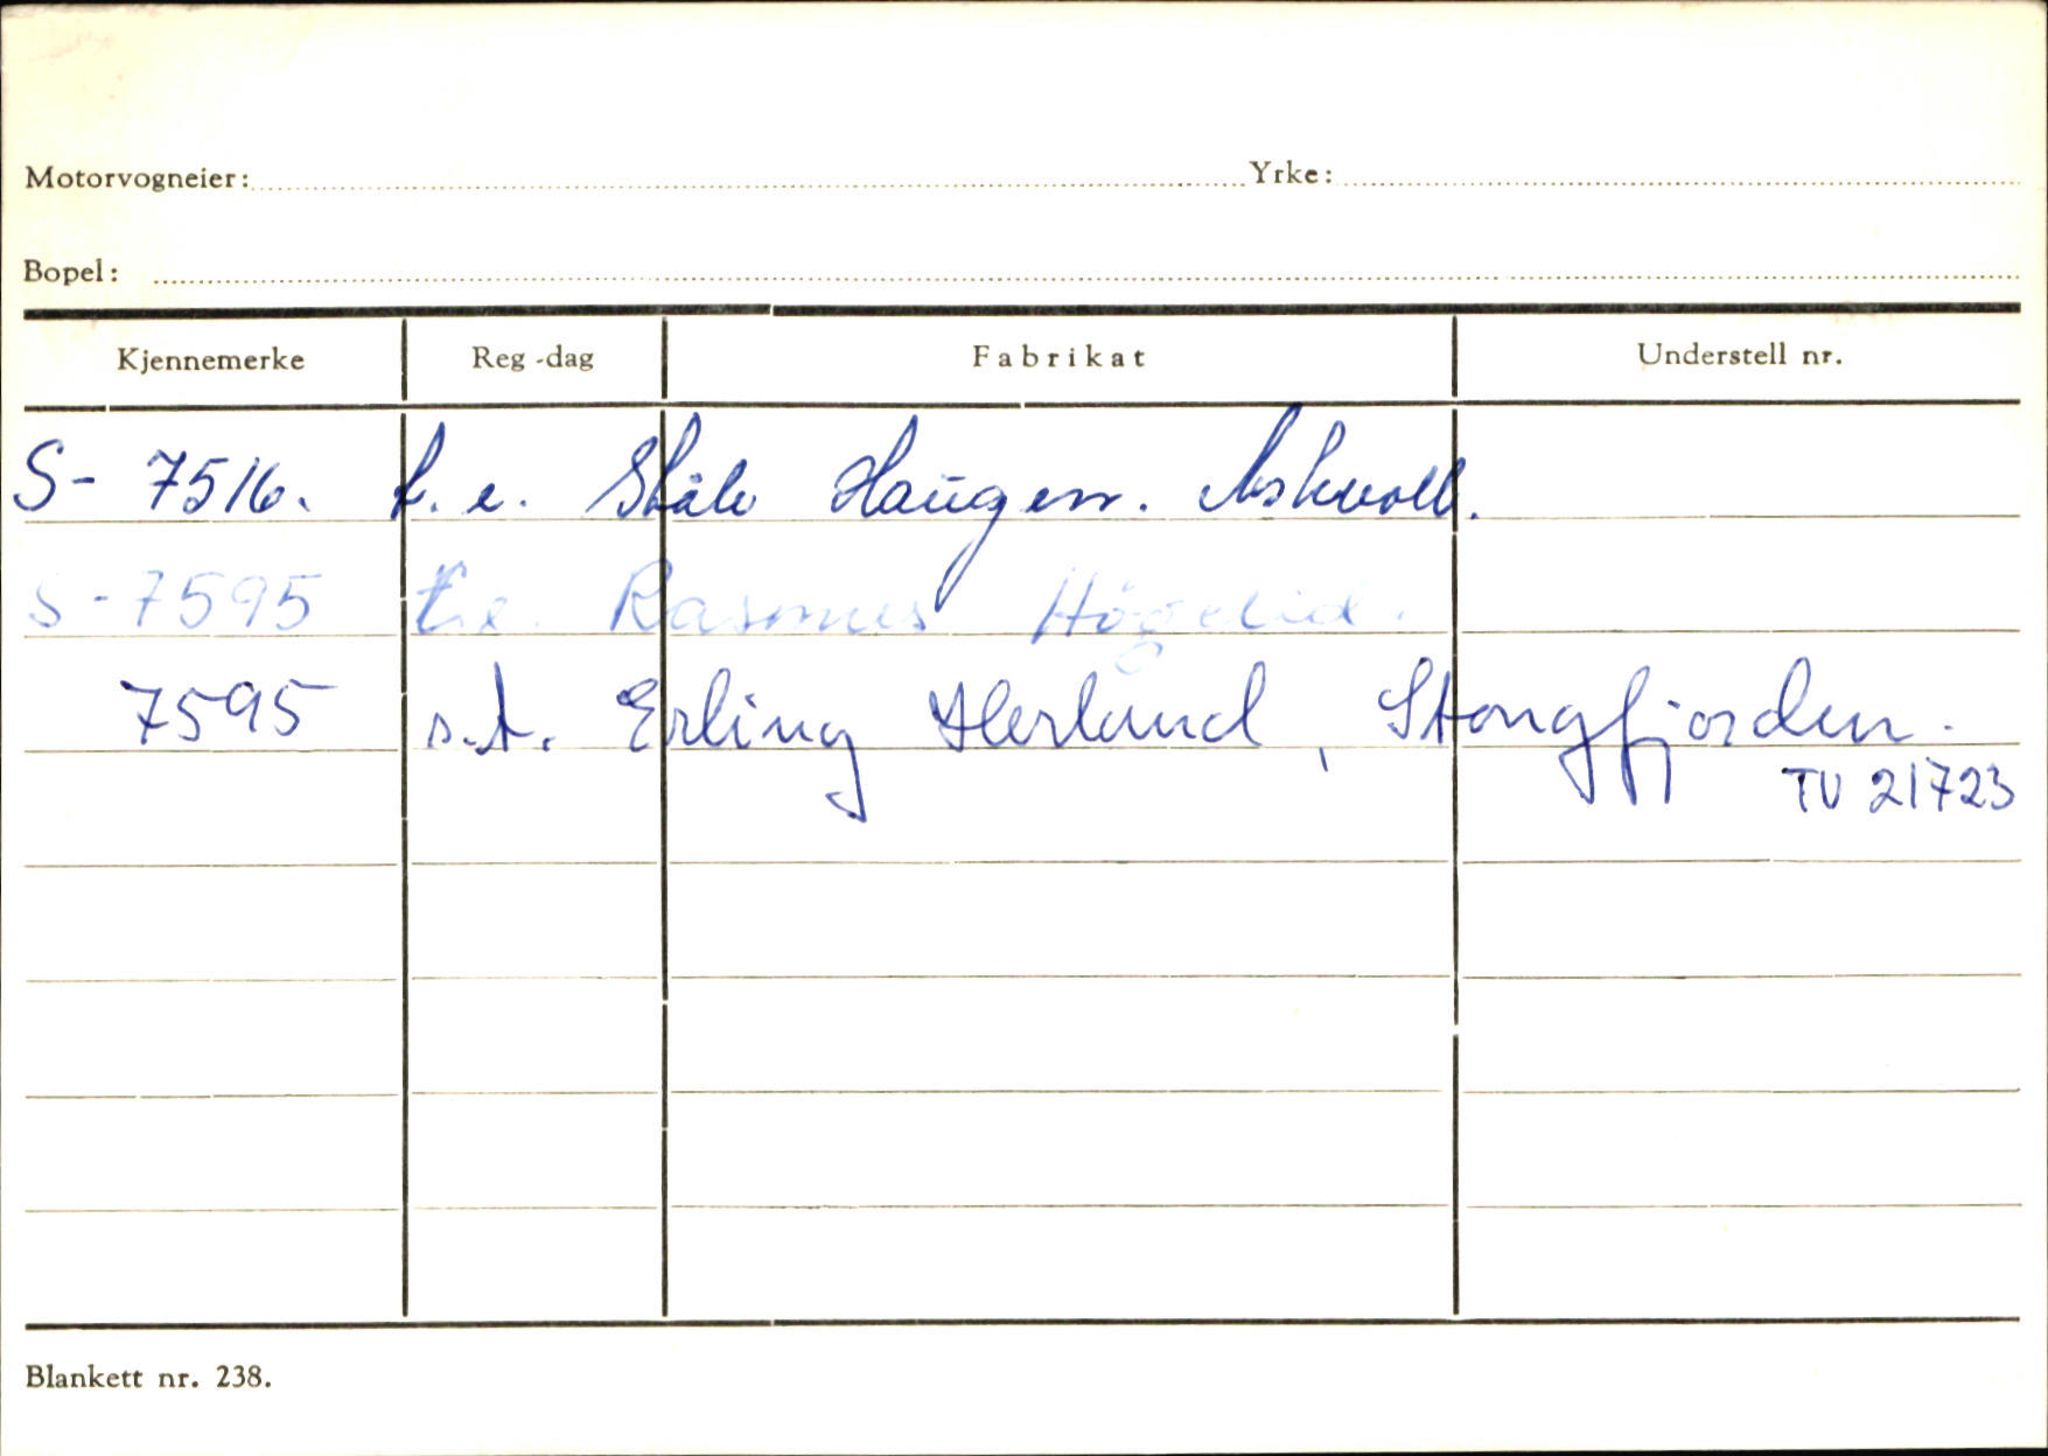 Motorvogneier: Yrke:
Bopel:
Kjennemerke Reg-dag Fabrikat Understell nr.
S- 7516. t.e. Ståle Haugen. Askvoll.
S-7595 t.e. Rasmus Högelid.
7595 s.t. Erling Herland, Stongfjorden.
TV 21723
Blankett nr. 238.